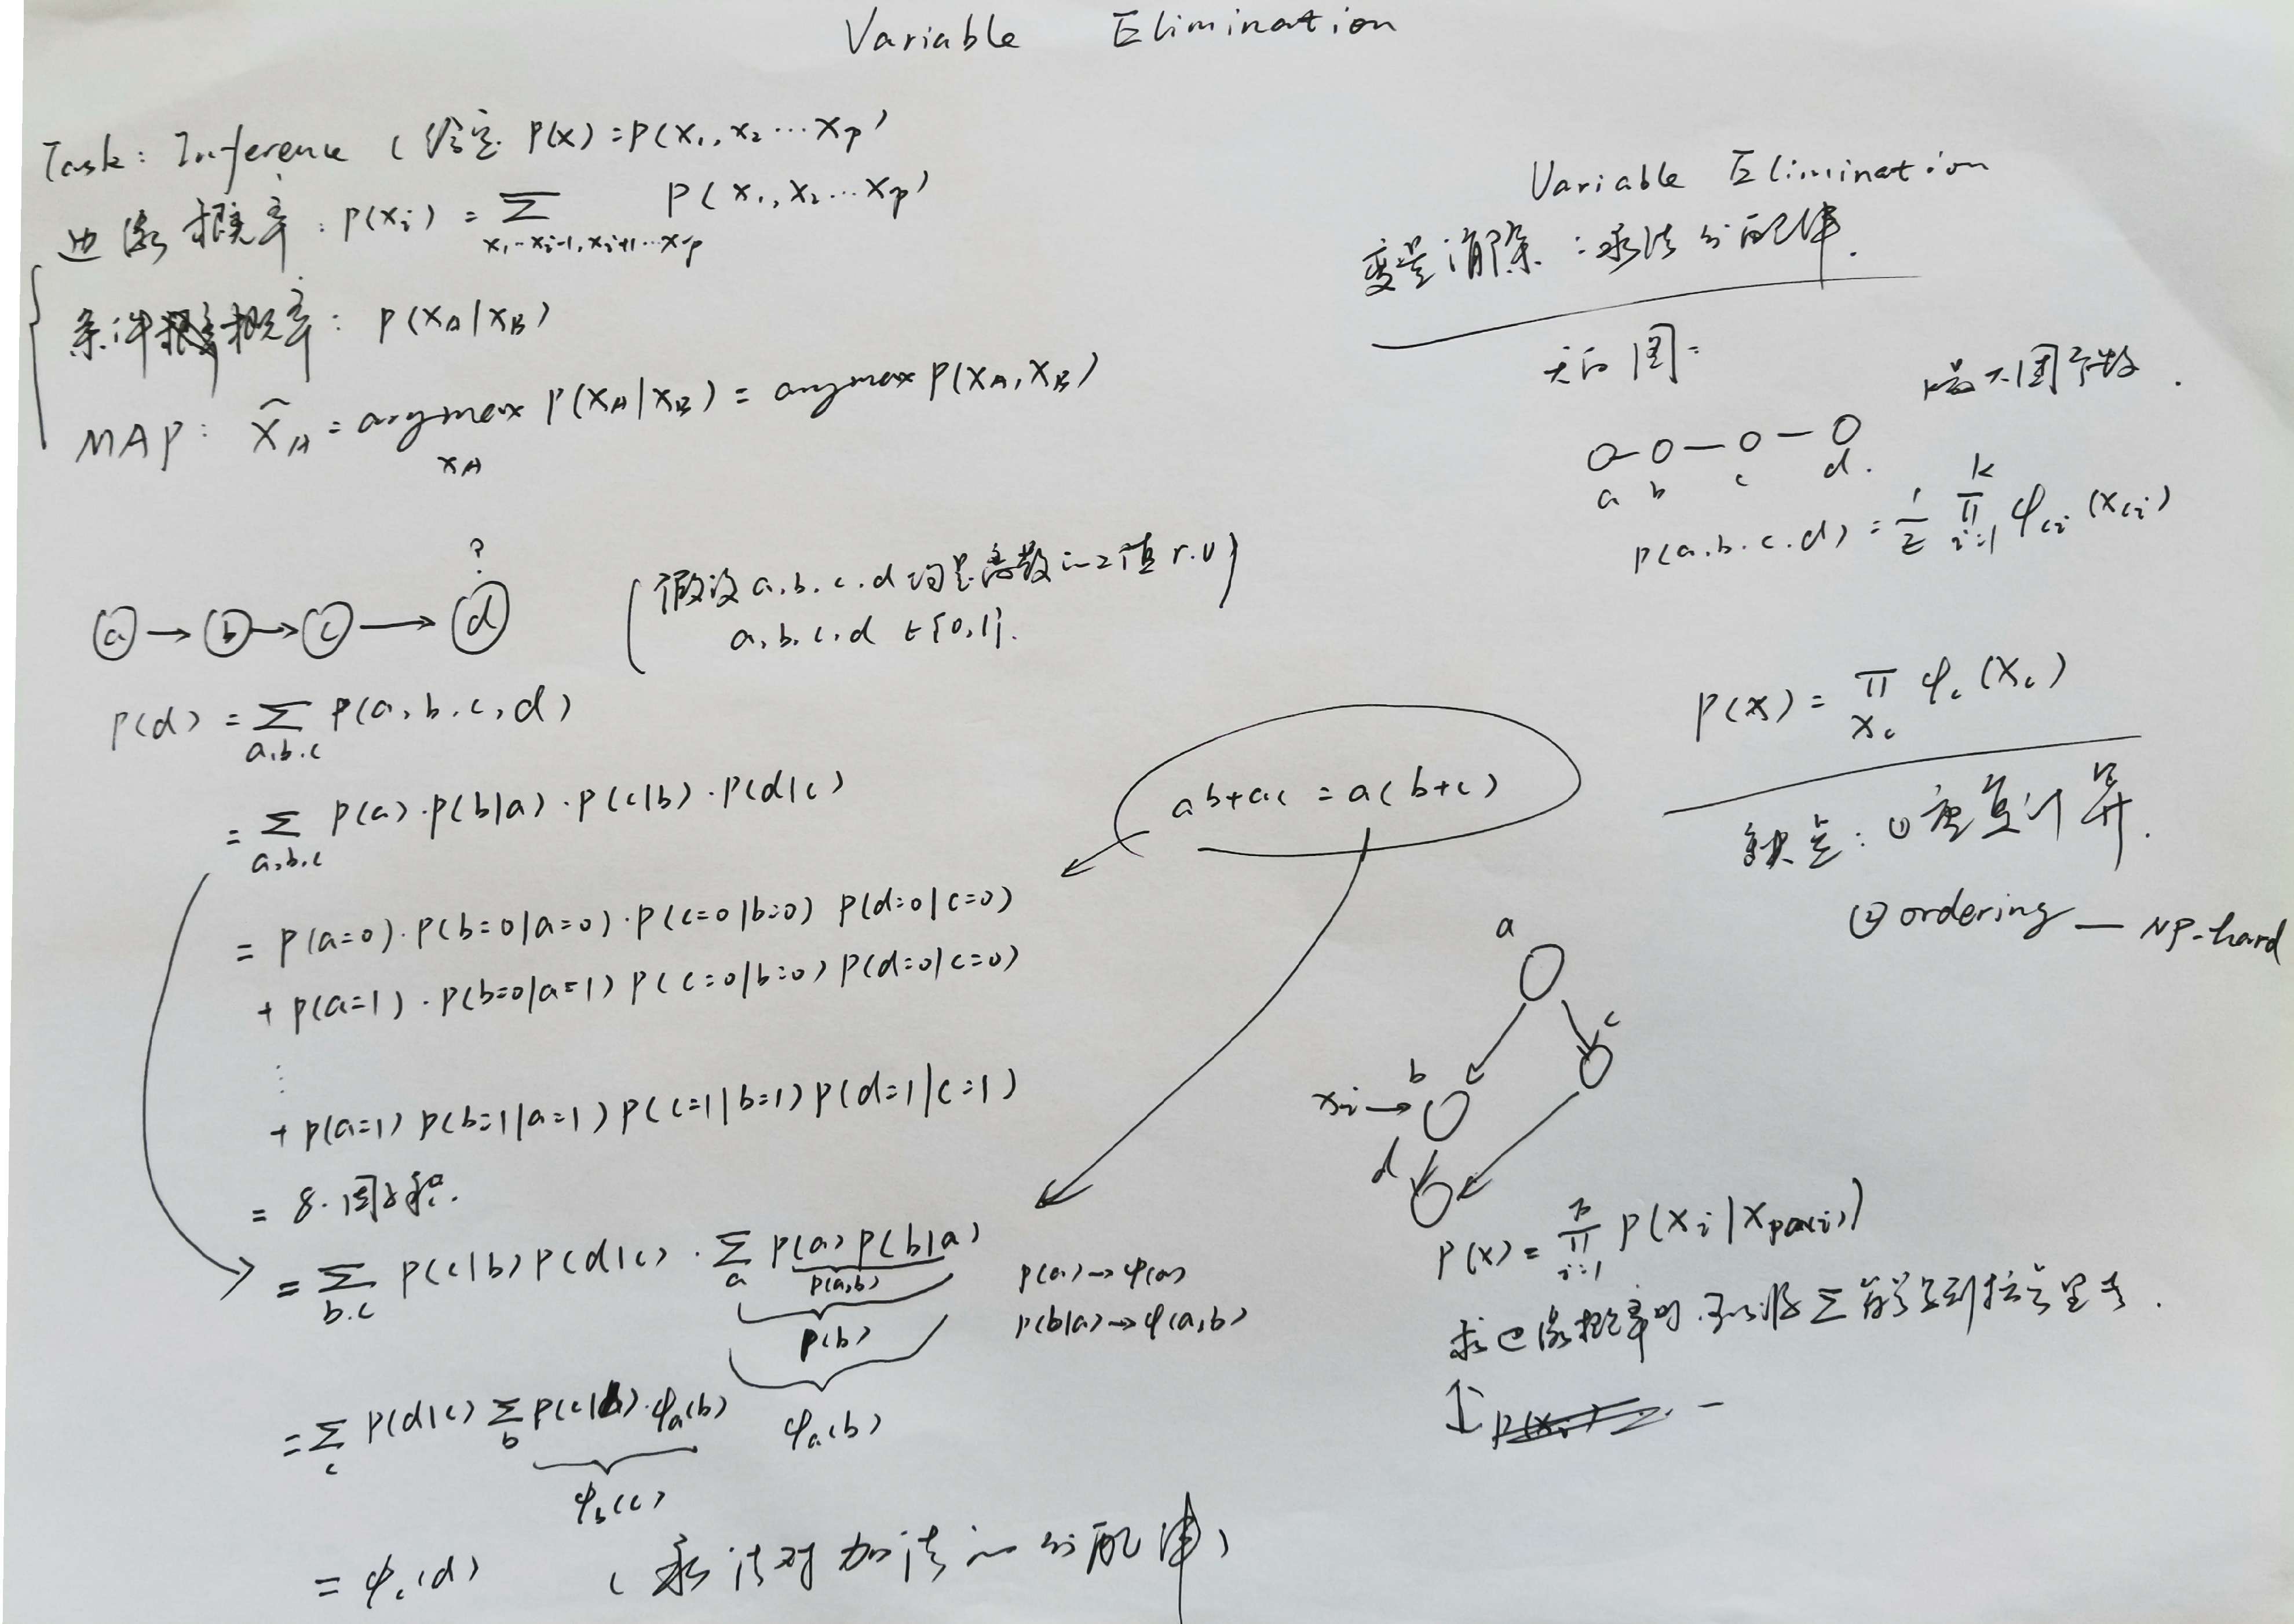 Variable Elimination
Task: Inference (给定 P(x)=P(x₁,x₂…x_p)
边缘概率: P(xᵢ) = ∑_{x₁…x_{i-1},x_{i+1}…x_p} P(x₁,x₂…x_p)
条件概率: P(x_A|x_B)
MAP: x̂_A = argmax_{x_A} P(x_A|x_B) = argmax P(x_A,x_B)
?
a → b → c → d
(假设 a.b.c.d 均是离散的2值 r.v)
a.b.c.d ∈{0,1}.
P(d) = ∑_{a.b.c} P(a,b.c,d)
= ∑_{a.b.c} P(a)·P(b|a)·P(c|b)·P(d|c)
ab+ac = a(b+c)
= P(a=0)·P(b=0|a=0)·P(c=0|b=0) P(d=0|c=0)
+ P(a=1)·P(b=0|a=1) P(c=0|b=0) P(d=0|c=0)
⋮
+ P(a=1) P(b=1|a=1) P(c=1|b=1) P(d=1|c=1)
= 8.个因子积.
= ∑_{b.c} P(c|b) P(d|c) · ∑_a P(a) P(b|a)
P(a,b)
P(b)
φ_a(b)
P(a)→φ(a)
P(b|a)→φ(a,b)
= ∑_c P(d|c) ∑_b P(c|b)·φ_a(b)
φ_b(c)
= φ_c(d) (乘法对加法的分配律)
Variable Elimination
变量消除:乘法分配律.
无向图:
最大团子数.
a b c d.
P(a.b.c.d) = 1/Z ∏_{i=1}^{K} φ_{ci}(x_{ci})
P(x) = ∏_{x_c} φ_c(x_c)
缺点: ①重复计算.
②ordering — NP-hard
a
b c
xᵢ→
d
P(x) = ∏_{i=1}^{p} P(xᵢ|x_{pa(i)})
求边缘概率时.可以将∑